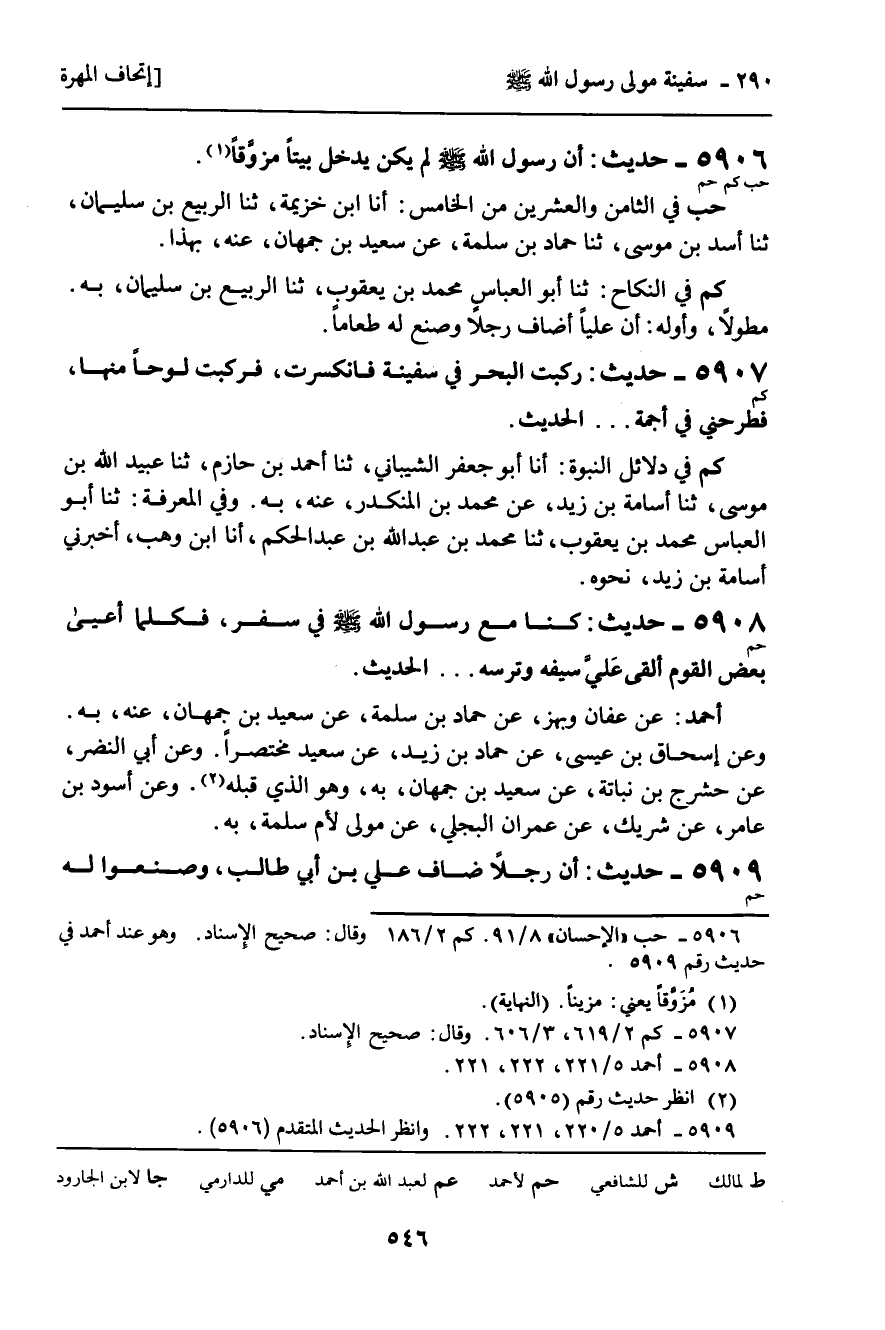 ٢٩٠ ـ سفينة مولى رسول الله ﷺ [إتحاف المهرة
٥٩٠٦ ـ حديث: أن رسول الله ﷺ لم يكن يدخل بيتاً مزوَّقاً(١).
حب كم حم
حب في الثامن والعشرين من الخامس: أنا ابن خزيمة، ثنا الربيع بن سليمان،
ثنا أسد بن موسى، ثنا حماد بن سلمة، عن سعيد بن جمهان، عنه، بهذا.
كم في النكاح: ثنا أبو العباس محمد بن يعقوب، ثنا الربيع بن سليمان، به.
مطولاً، وأوله: أن علياً أضاف رجلاً وصنع له طعاماً.
٥٩٠٧ ـ حديث: ركبت البحر في سفينة فانكسرت، فركبت لوحاً منها،
كم
فطرحني في أجمة... الحديث.
كم في دلائل النبوة: أنا أبو جعفر الشيباني، ثنا أحمد بن حازم، ثنا عبيد الله بن
موسى، ثنا أسامة بن زيد، عن محمد بن المنكدر، عنه، به. وفي المعرفة: ثنا أبو
العباس محمد بن يعقوب، ثنا محمد بن عبدالله بن عبدالحكم، أنا ابن وهب، أخبرني
أسامة بن زيد، نحوه.
٥٩٠٨ ـ حديث: كنا مع رسول الله ﷺ في سفر، فكلما أعيىٰ
حم
بعض القوم ألقى عَليَّ سيفه وترسه... الحديث.
أحمد: عن عفان وبهز، عن حماد بن سلمة، عن سعيد بن جمهان، عنه، به.
وعن إسحاق بن عيسى، عن حماد بن زيد، عن سعيد مختصراً. وعن أبي النضر،
عن حشرج بن نباتة، عن سعيد بن جمهان، به، وهو الذي قبله(٢). وعن أسود بن
عامر، عن شريك، عن عمران البجلي، عن مولى لأم سلمة، به.
٥٩٠٩ ـ حديث: أن رجلاً ضاف علي بن أبي طالب، وصنعوا له
حم
٥٩٠٦ ـ حب «الإحسان» ٩١/٨. كم ١٨٦/٢ وقال: صحيح الإسناد. وهو عند أحمد في
حديث رقم ٥٩٠٩ .
(١) مُزَوَّقاً يعني: مزيناً. (النهاية).
٥٩٠٧ ـ كم ٦١٩/٢، ٦٠٦/٣. وقال: صحيح الإسناد.
٥٩٠٨ ـ أحمد ٢٢١/٥، ٢٢٢، ٢٢١.
(٢) انظر حديث رقم (٥٩٠٥).
٥٩٠٩ ـ أحمد ٢٢٠/٥، ٢٢١، ٢٢٢. وانظر الحديث المتقدم (٥٩٠٦).
ط لمالك ش للشافعي حم لأحمد عم لعبد الله بن أحمد مي للدارمي جا لابن الجارود
٥٤٦